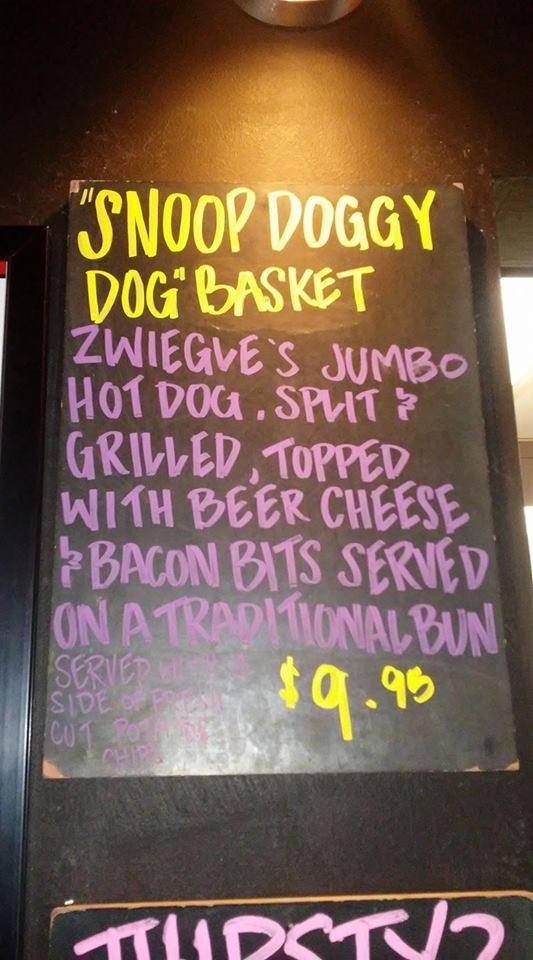 "SNOOP DOGGY
DOG" BASKET
ZWIEGLE'S JUMBO
HOT DOG, SPLIT &
GRILLED, TOPPED
WITH BEER CHEESE
& BACON BITS SERVED
ON A TRADITIONAL BUN
SERVED WITH A
SIDE OF FRESH
CUT POTATOE
CHIPS
$9.95
THIRSTY?